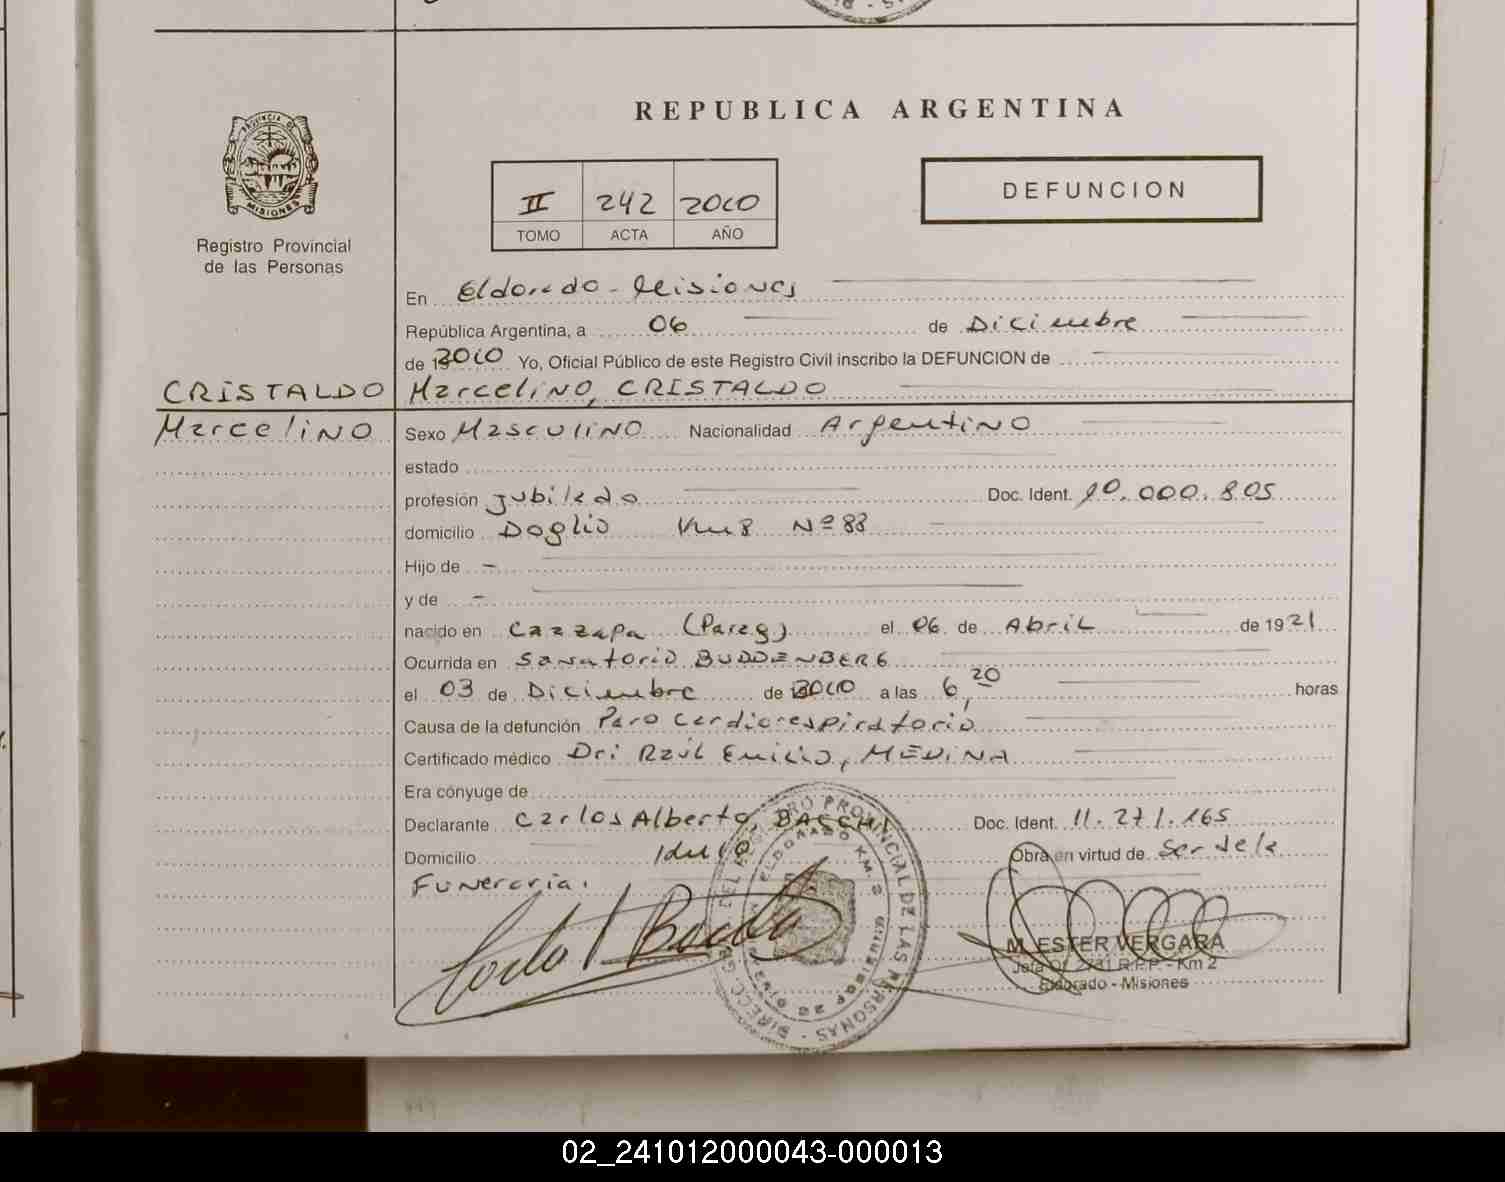 REPUBLICA ARGENTINA
PROVINCIA DE
MISIONES
Registro Provincial
de las Personas
II 242 2010
TOMO ACTA AÑO
DEFUNCION
En Eldorado - Misiones
República Argentina, a 06 de Diciembre
de 2010 Yo, Oficial Público de este Registro Civil inscribo la DEFUNCION de
CRISTALDO Marcelino, CRISTALDO
Marcelino Sexo Masculino Nacionalidad Argentino
estado
profesión jubilado Doc. Ident. 10.000.805
domicilio Doglio Km 8 Nº 88
Hijo de -
y de -
nacido en Cazzapa (Parag) el 06 de Abril de 1921
Ocurrida en Sanatorio BUDDENBERG
el 03 de Diciembre de 2010 a las 6,20 horas
Causa de la defunción Paro Cardiorespiratorio
Certificado médico Dr: Raúl Emilio, MEDINA
Era cónyuge de
Declarante Carlos Alberto, BACCHI Doc. Ident. 11.271.165
Domicilio Obra en virtud de Ser de la
Funeraria.
DIRECC. GRAL. DEL REGISTRO PROVINCIAL DE LAS PERSONAS
ELDORADO KM. 8
M. ESTER VERGARA
R.P.P. - Km 2
Eldorado - Misiones
02_241012000043-000013